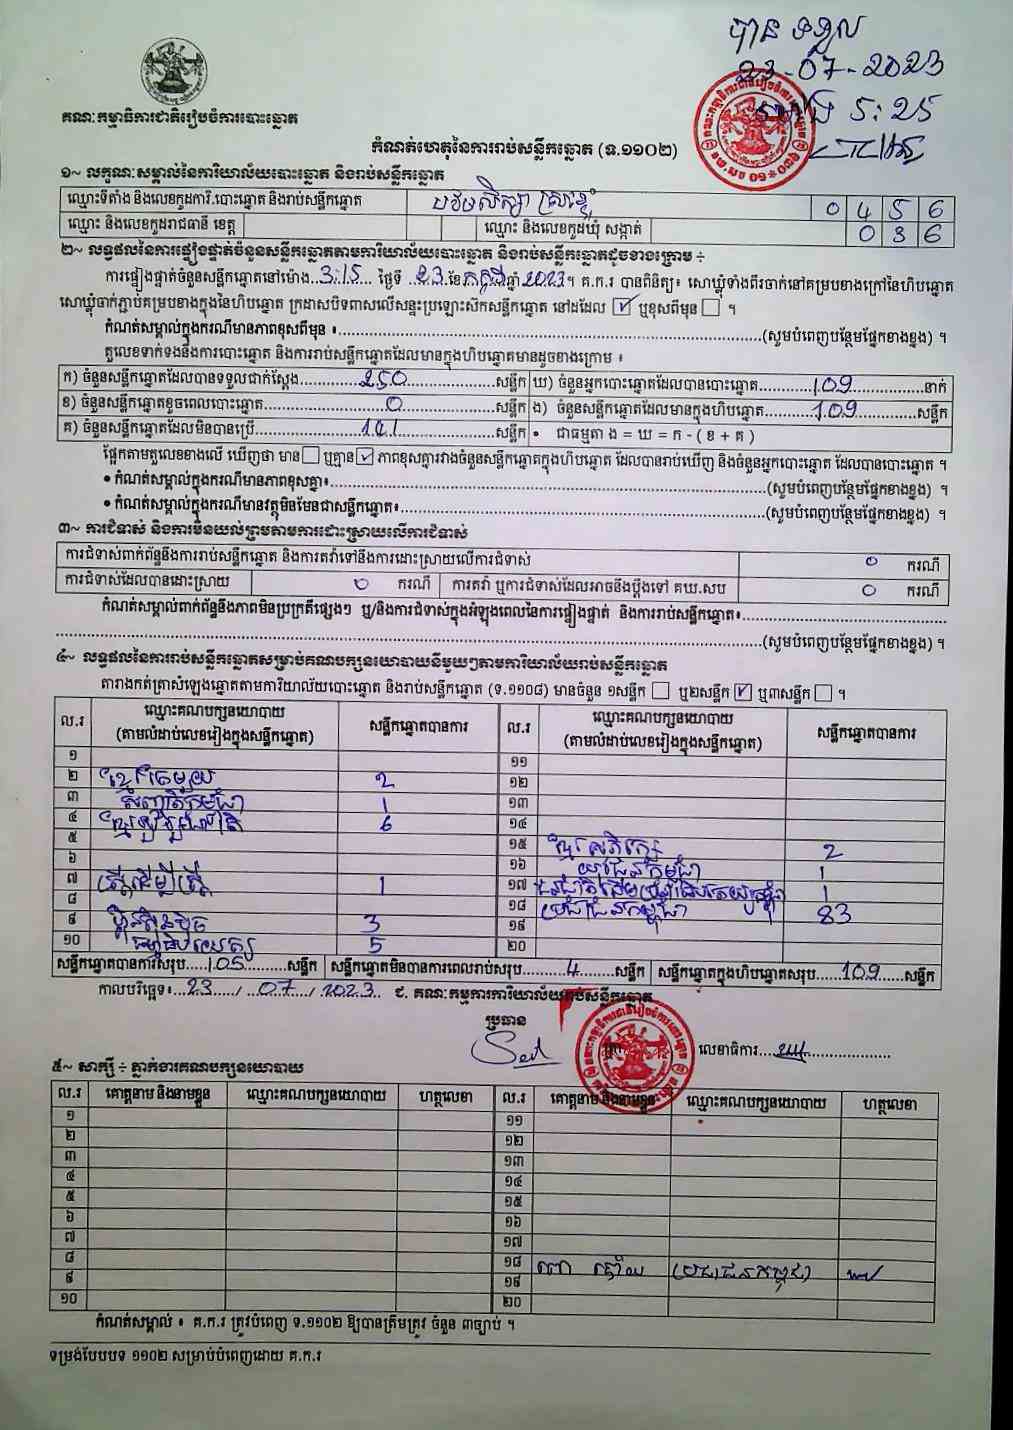 បាន ទទួល
23-07-2023
ម៉ោង 5:25
គណៈកម្មាធិការជាតិរៀបចំការបោះឆ្នោត
កំណត់ហេតុនៃការរាប់សន្លឹកឆ្នោត (ទ.១១០២)
១~ លក្ខណៈសម្គាល់នៃការិយាល័យបោះឆ្នោត និងរាប់សន្លឹកឆ្នោត
ឈ្មោះទីតាំង និងលេខកូដការិ.បោះឆ្នោត និងរាប់សន្លឹកឆ្នោត 0 4 5 6
ឈ្មោះ និងលេខកូដរាជធានី ខេត្ត ឈ្មោះ និងលេខកូដឃុំ សង្កាត់ 0 3 6
២~ លទ្ធផលនៃការផ្ទៀងផ្ទាត់ចំនួនសន្លឹកឆ្នោតតាមការិយាល័យបោះឆ្នោត និងរាប់សន្លឹកឆ្នោតដូចខាងក្រោម ÷
ការផ្ទៀងផ្ទាត់ចំនួនសន្លឹកឆ្នោតនៅម៉ោង 3:15 ថ្ងៃទី 23 ខែ កក្កដា ឆ្នាំ 2023 ។ គ.ក.រ បានពិនិត្យ៖ សោឃ្លុំទាំងពីរចាក់នៅគម្របខាងក្រៅនៃហិបឆ្នោត
សោឃ្លុំចាក់ភ្ជាប់គម្របខាងក្នុងនៃហិបឆ្នោត ក្រដាសបិទពាសលើសន្ទះប្រឡោះស៊កសន្លឹកឆ្នោត នៅដដែល ☑ ឬខុសពីមុន ☐ ។
កំណត់សម្គាល់ក្នុងករណីមានភាពខុសពីមុន ៖ (សូមបំពេញបន្ថែមផ្នែកខាងខ្នង) ។
តួលេខទាក់ទងនឹងការបោះឆ្នោត និងការរាប់សន្លឹកឆ្នោតដែលមានក្នុងហិបឆ្នោតមានដូចខាងក្រោម ៖
ក) ចំនួនសន្លឹកឆ្នោតដែលបានទទួលជាក់ស្តែង 250 សន្លឹក ឃ) ចំនួនអ្នកបោះឆ្នោតដែលបានបោះឆ្នោត 109 នាក់
ខ) ចំនួនសន្លឹកឆ្នោតខូចពេលបោះឆ្នោត 0 សន្លឹក ង) ចំនួនសន្លឹកឆ្នោតដែលមានក្នុងហិបឆ្នោត 109 សន្លឹក
គ) ចំនួនសន្លឹកឆ្នោតដែលមិនបានប្រើ 141 សន្លឹក • ជាធម្មតា ង = ឃ = ក - ( ខ + គ )
ផ្អែកតាមតួលេខខាងលើ ឃើញថា មាន ☐ ឬគ្មាន ☑ ភាពខុសគ្នារវាងចំនួនសន្លឹកឆ្នោតក្នុងហិបឆ្នោត ដែលបានរាប់ឃើញ និងចំនួនអ្នកបោះឆ្នោត ដែលបានបោះឆ្នោត ។
• កំណត់សម្គាល់ក្នុងករណីមានភាពខុសគ្នា៖ (សូមបំពេញបន្ថែមផ្នែកខាងខ្នង) ។
• កំណត់សម្គាល់ក្នុងករណីមានវត្ថុមិនមែនជាសន្លឹកឆ្នោត៖ (សូមបំពេញបន្ថែមផ្នែកខាងខ្នង) ។
៣~ ការជំទាស់ និងការមិនយល់ព្រមតាមការដោះស្រាយលើការជំទាស់
ការជំទាស់ពាក់ព័ន្ធនឹងការរាប់សន្លឹកឆ្នោត និងការតវ៉ាទៅនឹងការដោះស្រាយលើការជំទាស់ 0 ករណី
ការជំទាស់ដែលបានដោះស្រាយ 0 ករណី ការតវ៉ា ឬការជំទាស់ដែលអាចនឹងប្តឹងទៅ គឃ.សប 0 ករណី
កំណត់សម្គាល់ពាក់ព័ន្ធនឹងភាពមិនប្រក្រតីផ្សេងៗ ឬ/និងការជំទាស់ក្នុងអំឡុងពេលនៃការផ្ទៀងផ្ទាត់ និងការរាប់សន្លឹកឆ្នោត៖
(សូមបំពេញបន្ថែមផ្នែកខាងខ្នង) ។
៤~ លទ្ធផលនៃការរាប់សន្លឹកឆ្នោតសម្រាប់គណបក្សនយោបាយនីមួយៗតាមការិយាល័យរាប់សន្លឹកឆ្នោត
តារាងកត់ត្រាសំឡេងឆ្នោតតាមការិយាល័យបោះឆ្នោត និងរាប់សន្លឹកឆ្នោត (ទ.១១០៨) មានចំនួន ១សន្លឹក ☐ ឬ២សន្លឹក ☑ ឬ៣សន្លឹក ☐ ។
ល.រ ឈ្មោះគណបក្សនយោបាយ (តាមលំដាប់លេខរៀងក្នុងសន្លឹកឆ្នោត) សន្លឹកឆ្នោតបានការ ល.រ ឈ្មោះគណបក្សនយោបាយ (តាមលំដាប់លេខរៀងក្នុងសន្លឹកឆ្នោត) សន្លឹកឆ្នោតបានការ
១ ១១
២ ខ្មែរតែមួយ 2 ១២
៣ សញ្ជាតិកម្ពុជា 1 ១៣
៤ 6 ១៤
៥ ១៥ 2
៦ ១៦ យុវជនកម្ពុជា 1
៧ ស្ត្រីដើម្បីស្ត្រី 1 ១៧ 1
៨ ១៨ ប្រជាជនកម្ពុជា 83
៩ ហ៊្វុនស៊ិនប៉ិច 3 ១៩
១០ 5 ២០
សន្លឹកឆ្នោតបានការសរុប 105 សន្លឹក សន្លឹកឆ្នោតមិនបានការពេលរាប់សរុប 4 សន្លឹក សន្លឹកឆ្នោតក្នុងហិបឆ្នោតសរុប 109 សន្លឹក
កាលបរិច្ឆេទ៖ 23 / 07 / 2023 ជ. គណៈកម្មការការិយាល័យរាប់សន្លឹកឆ្នោត
ប្រធាន
លេខាធិការ
៥~ សាក្សី ÷ ភ្នាក់ងារគណបក្សនយោបាយ
ល.រ គោត្តនាម និងនាមខ្លួន ឈ្មោះគណបក្សនយោបាយ ហត្ថលេខា ល.រ គោត្តនាម និងនាមខ្លួន ឈ្មោះគណបក្សនយោបាយ ហត្ថលេខា
១ ១១
២ ១២
៣ ១៣
៤ ១៤
៥ ១៥
៦ ១៦
៧ ១៧
៨ ១៨ ប្រជាជនកម្ពុជា
៩ ១៩
១០ ២០
កំណត់សម្គាល់ ៖ គ.ក.រ ត្រូវបំពេញ ទ.១១០២ ឱ្យបានត្រឹមត្រូវ ចំនួន ៣ច្បាប់ ។
ទម្រង់បែបបទ ១១០២ សម្រាប់បំពេញដោយ គ.ក.រ